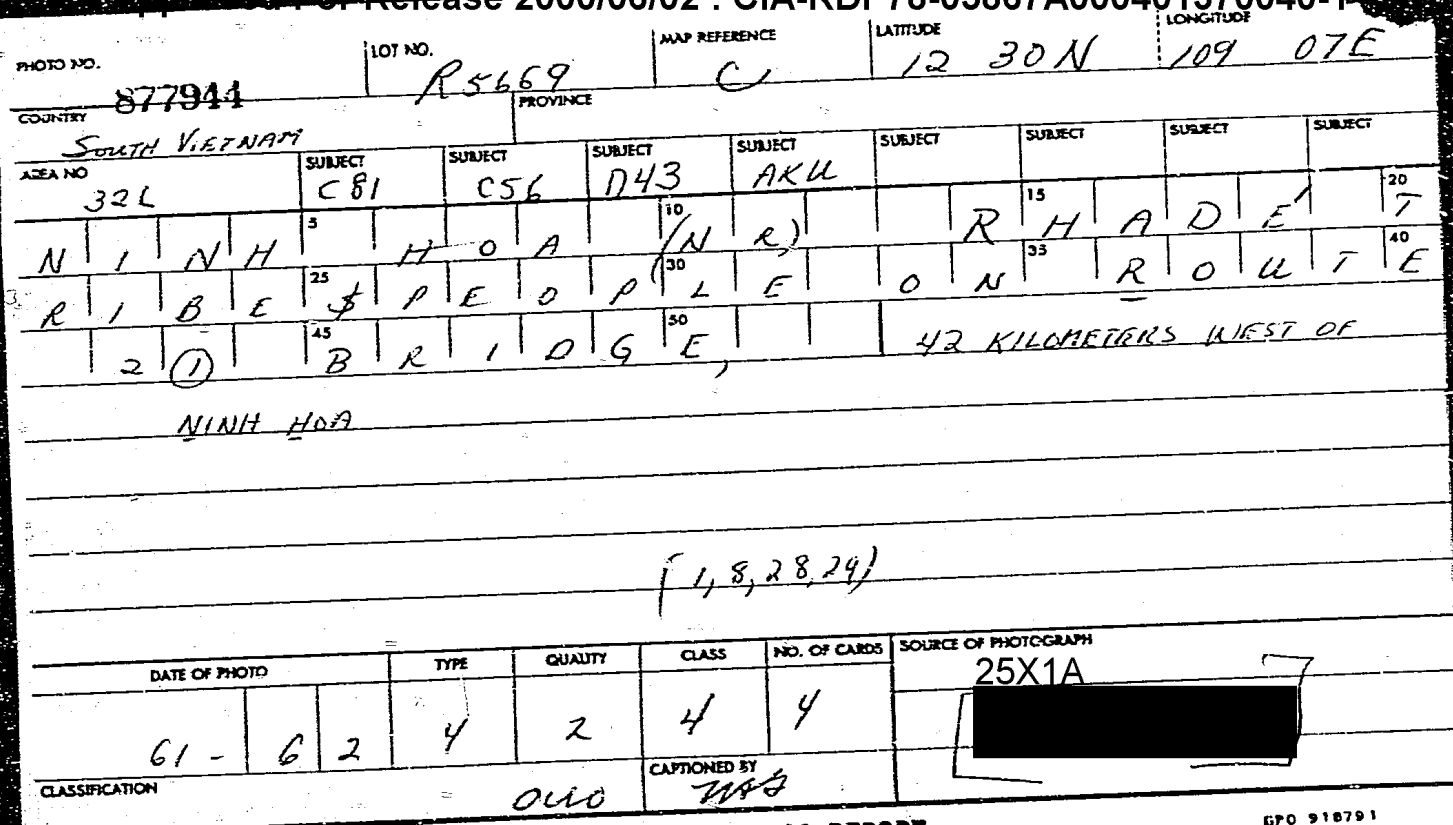 For Release 2000/06/02 : CIA-RDP78-03867A000401370040-1
PHOTO NO. 877944 LOT NO. R5669 MAP REFERENCE C LATITUDE 12 30N LONGITUDE 109 07E
COUNTRY South VIETNAM PROVINCE
AREA NO 32L SUBJECT C81 SUBJECT C56 SUBJECT D43 SUBJECT AKU SUBJECT SUBJECT SUBJECT SUBJECT
NINH 5 HOA 10 (NR) R 15 HADÉ 20 T
RIBE 25 $PEOP 30 LE ON 35 ROUT 40 E
2 (1) 45 BRIDG 50 E, 42 KILOMETERS WEST OF
NINH HOA
(1,8,28,29)
DATE OF PHOTO TYPE QUALITY CLASS NO. OF CARDS SOURCE OF PHOTOGRAPH
25X1A
61 - 62 4 2 4 4
CLASSIFICATION OUO CAPTIONED BY
GPO 918791